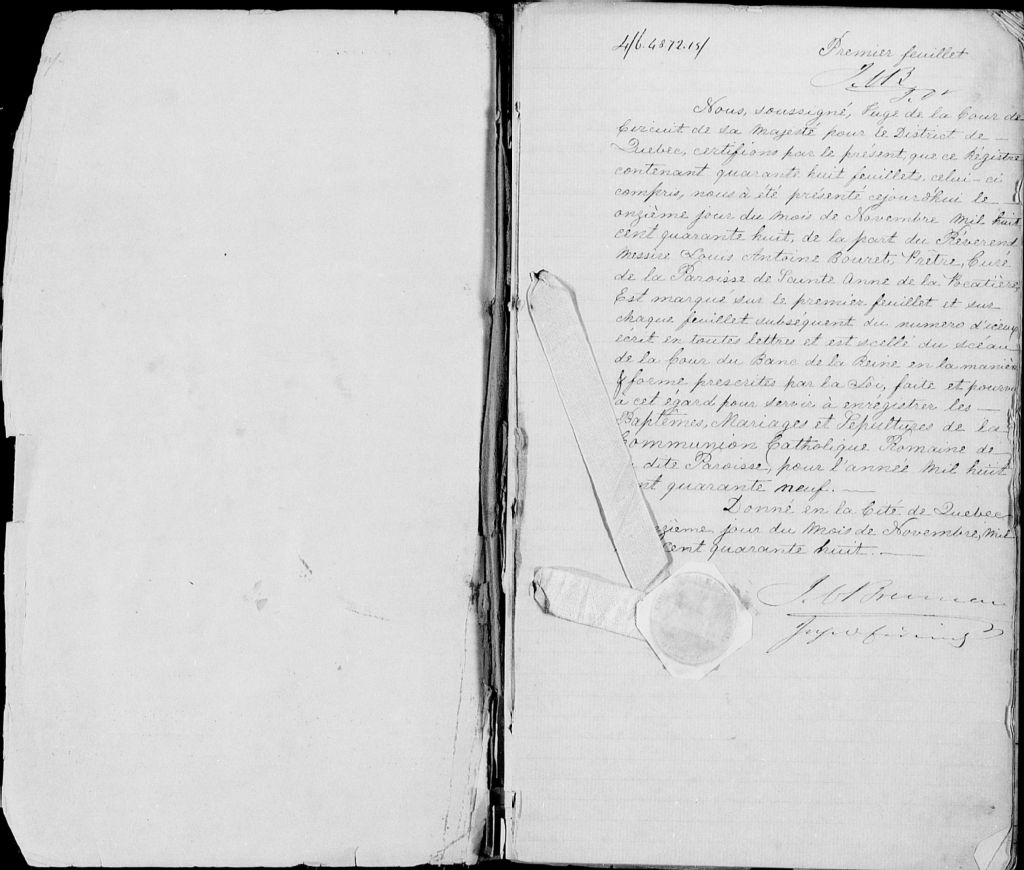 4/6.4872.15/
Premier feuillet
Nous, soussigné, Juge de la Cour de
Circuit de sa Majesté pour le District de —
Quebec, certifions par le présent, que ce Régistre
contenant quarante huit feuillets, celui-ci
compris, nous à été présenté cejourd'hui le —
onzième jour du mois de Novembre mil huit
cent quarante huit, de la part du Réverend
Messire Louis Antoine Bouret, Prêtre, Curé
de la Paroisse de Sainte Anne de la Pocatière,
Est marqué sur le premier feuillet et sur
chaque feuillet subséquent du numero d'iceux
écrit en toutes lettres et est scellé du scéau
de la Cour du Banc de la Reine en la manière
& forme prescrites par la Loi, faite et pourvu
à cet égard pour servir à enrégistrer les —
Baptêmes, Mariages et Sépultures de la
Communion Catholique Romaine de —
dite Paroisse, pour l'année mil huit
cent quarante neuf. —
Donné en la Cité de Quebec
onzième jour du mois de Novembre, mil
cent quarante huit. —